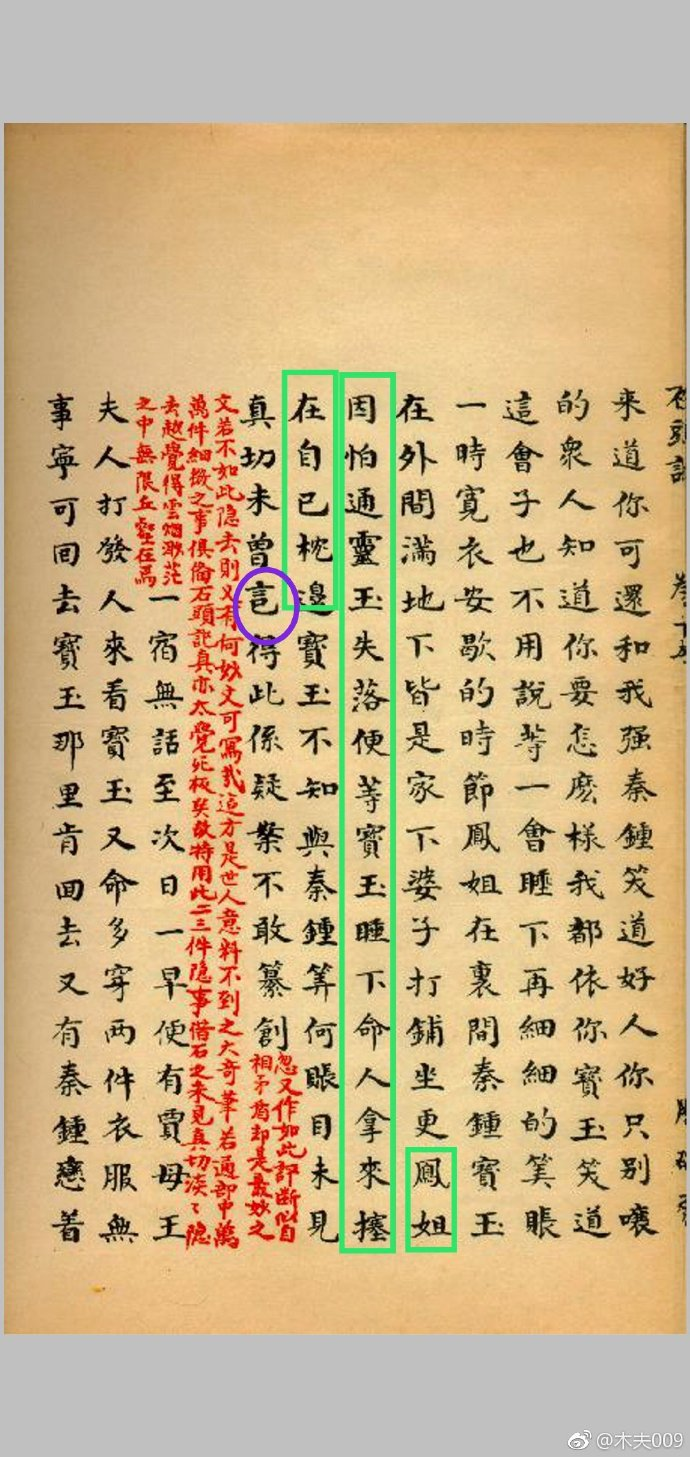 石頭記
来道你可還和我强秦鍾笑道好人你只别嚷
的衆人知道你要怎麽樣我都依你寳玉笑道
這會子也不用說等一會睡下再細細的筭賬
一時寬衣安歇的時節鳳姐在裏間秦鍾寳玉
在外間滿地下皆是家下婆子打鋪坐更鳳姐
因怕通靈玉失落便等寳玉睡下命人拿来㩙
在自己枕邉寳玉不知與秦鍾筭何賬目未見
真切未曾得此係疑案不敢纂創
忽又作如此評断似自
相矛盾却是最妙之
文若不如此隐去則又有何妙文可寫哉這方是世人意料不到之大奇筆若通部中萬
萬件細微之事俱偹石頭記真亦太覺死板矣故特用此二三件隐事借石之未見真切淡々隐
去越覺得雲烟渺茫
之中無限丘壑在焉
一宿無話至次日一早便有賈母王
夫人打發人來看寳玉又命多穿兩件衣服無
事寧可回去寳玉那里肯回去又有秦鍾戀着
@木夫009